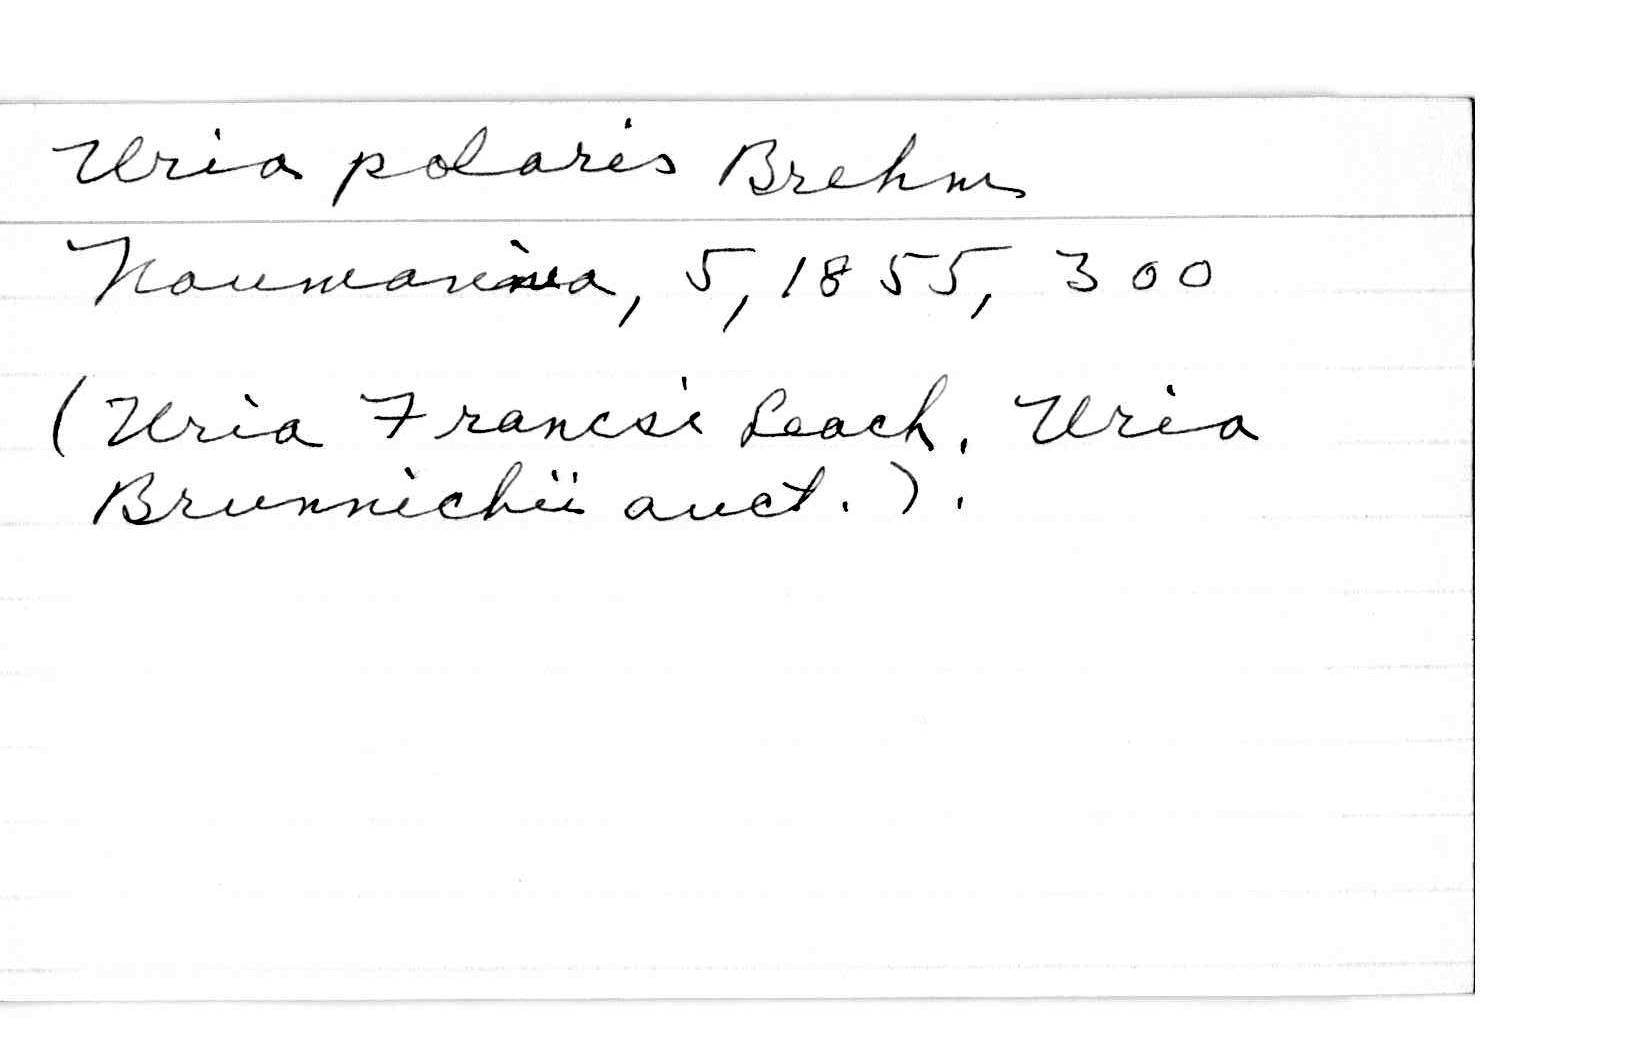 Uria polaris Brehm
Naumannia, 5, 1855, 300
(Uria Francsi Leach, Uria
Brunnichii auct.).